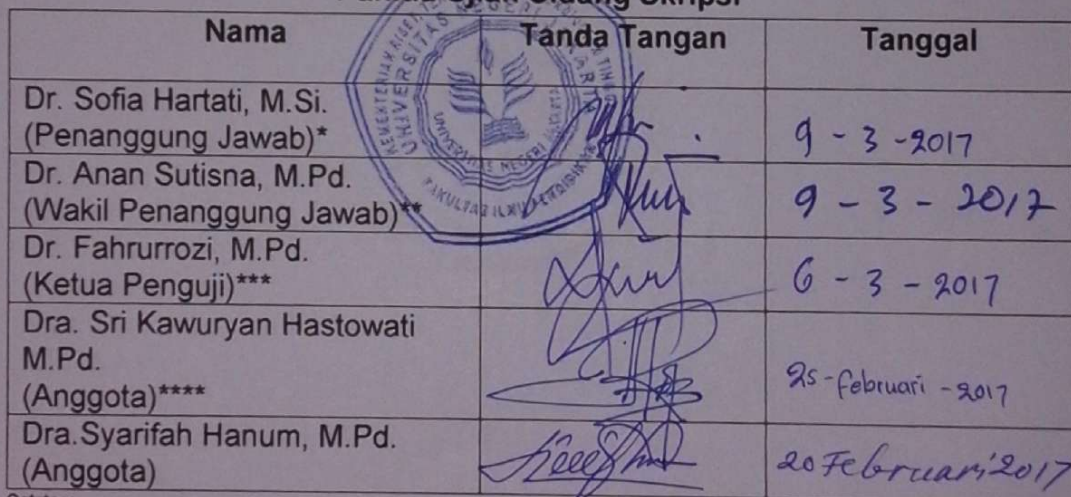 Nama Tanda Tangan Tanggal
Dr. Sofia Hartati, M.Si.
(Penanggung Jawab)* 9 - 3 - 2017
Dr. Anan Sutisna, M.Pd.
(Wakil Penanggung Jawab)** 9 - 3 - 2017
Dr. Fahrurrozi, M.Pd.
(Ketua Penguji)*** 6 - 3 - 2017
Dra. Sri Kawuryan Hastowati
M.Pd.
(Anggota)**** 25 - februari - 2017
Dra.Syarifah Hanum, M.Pd.
(Anggota) 20 Februari 2017
UNIVERSITAS NEGERI JAKARTA
FAKULTAS ILMU PENDIDIKAN